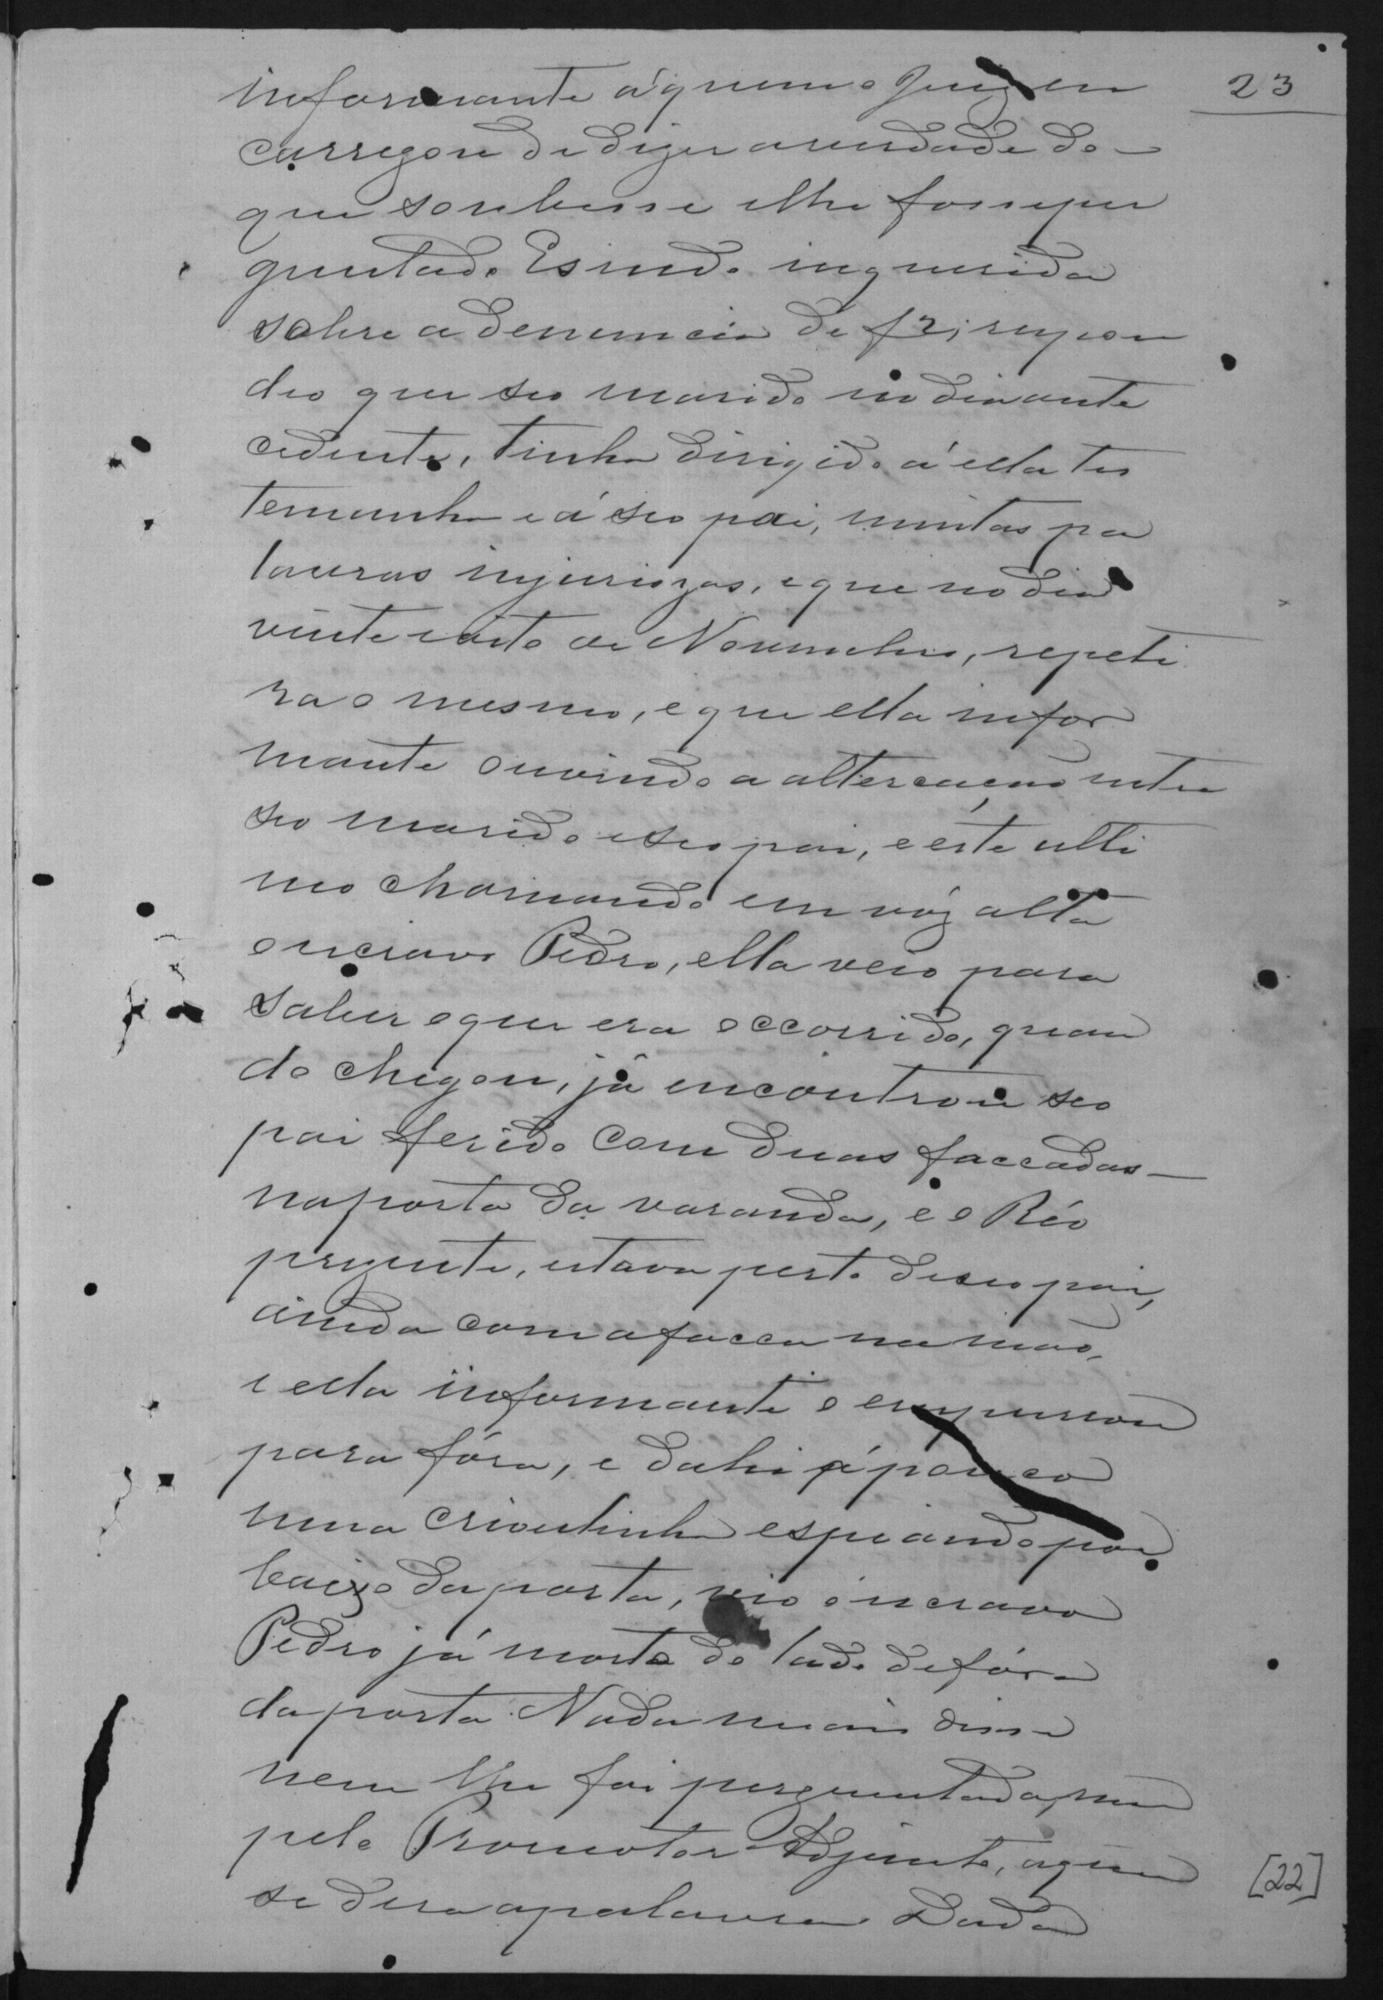 23
informante á quem o Juiz en
carregou de dizer a verdade do
que soubesse e lhe fosse per
guntado. E sendo inquerida
sobre a denuncia de f2, respon
deo que seo marido no dia ante
cedente, tinha dirigido á ella tes
temunha e á seo pai, muitas pa
lavras injuriozas, e que no dia
vinte e oito de Novembro, repeti
ra o mesmo, e que ella infor
mante ouvindo a altercação entre
seo marido e seo pai, e este ulti
mo chamando em vóz alta
o escravo Pedro, ella veio para
saber o que era occorrido, quan
do chegou, já encontrou seo
pai ferido com duas faccadas
na porta da varanda, e o Réo
prezente, estava perto de seo pai,
ainda com a facca na mão,
e ella informante o empurrou
para fóra, e dahi á pouco
uma crioulinha espiando por
baixo da porta, vio o escravo
Pedro já morto do lado de fóra
da porta. Nada mais disse
nem lhe foi perguntada, nem
pelo Promotor Adjunto, a quem
se dera a palavra. Dada
[22]